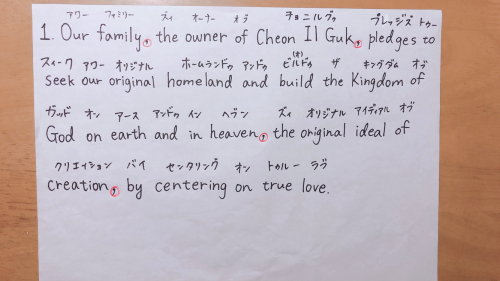 アワー ファミリー ズィ オーナー オブ チョニルグゥ プレッジズ トゥー
1. Our family, the owner of Cheon Il Guk, pledges to
スィーク アワー オリジナル ホームランドゥ アンドゥ ビルドゥ (オ) ザ キングダム オブ
seek our original homeland and build the Kingdom of
ガッド オン アース アンドゥ イン ヘブン ズィ オリジナル アイディアル オブ
God on earth and in heaven, the original ideal of
クリエイション バイ センタリング オン トゥルー ラブ
creation, by centering on true love.